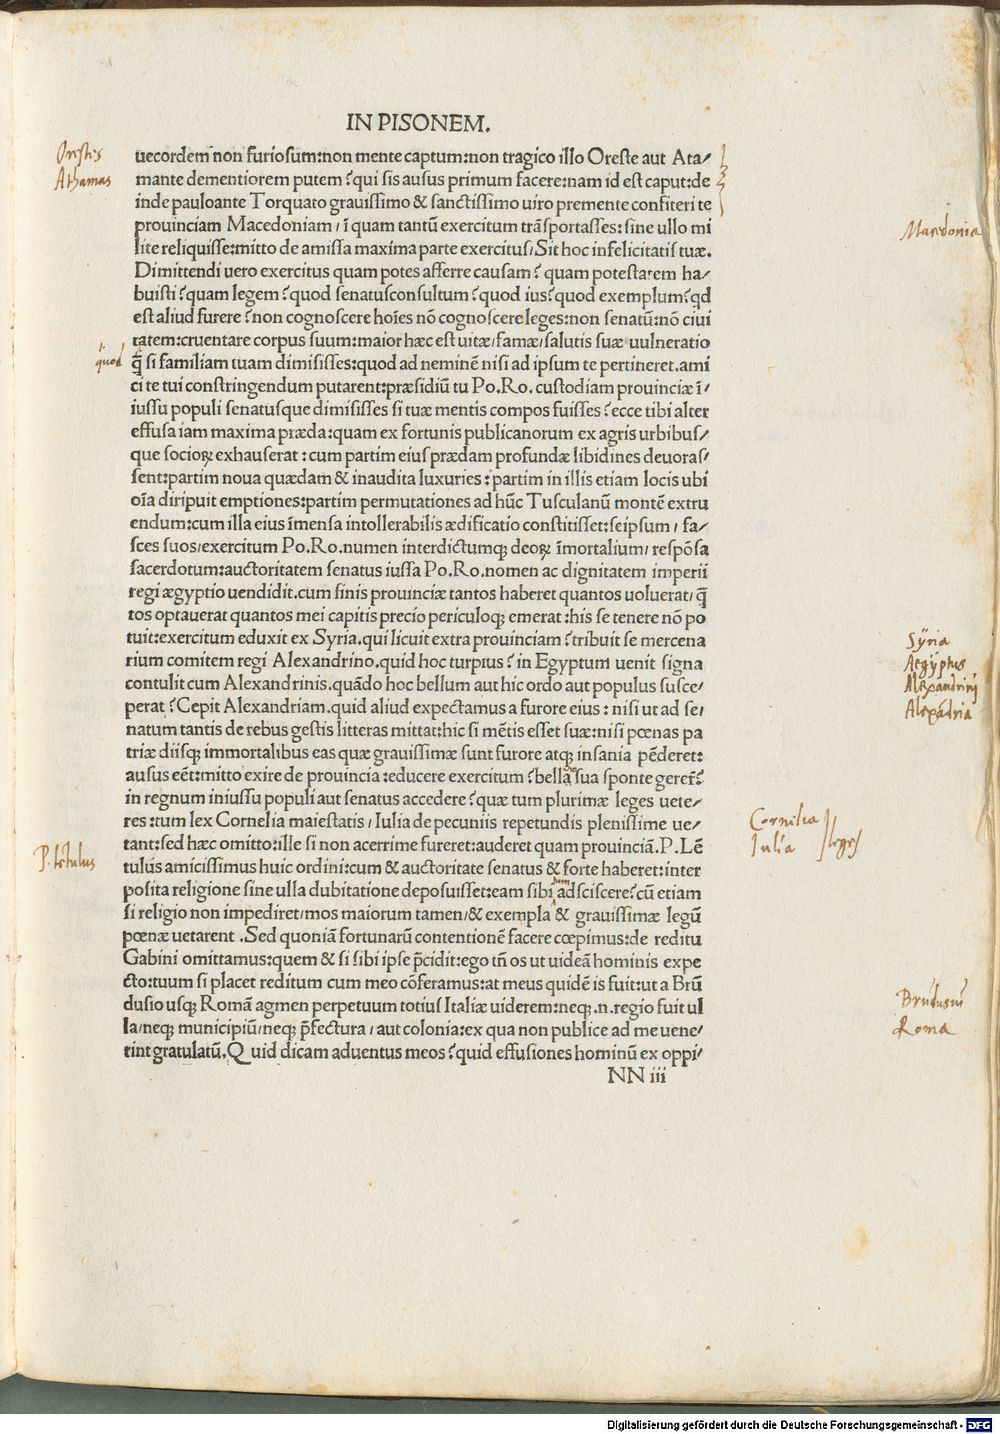 IN PISONEM.
Orestes
Athamas
uecordem non furiosum:non mente captum:non tragico illo Oreste aut Ata/
mante dementiorem putem?qui sis ausus primum facere:nam id est caput:de
inde pauloante Torquato grauissimo & sanctissimo uiro premente confiteri te
prouinciam Macedoniam/ī quam tantū exercitum trāsportasses:sine ullo mi
lite reliquisse:mitto de amissa maxima parte exercitus/Sit hoc infelicitatis tuæ.
Dimittendi uero exercitus quam potes afferre causam? quam potestatem ha/
buisti?quam legem?quod senatusconsultum?quod ius?quod exemplum?qd
est aliud furere?non cognoscere hoīes nō cognoscere leges:non senatū:nō ciui
tatem:cruentare corpus suum:maior hæc est uitæ/famæ/salutis suæ uulneratio
q̄ si familiam tuam dimisisses:quod ad neminē nisi ad ipsum te pertineret.ami
ci te tui constringendum putarent:præsidiū tu Po.Ro.custodiam prouinciæ ī/
iussu populi senatusque dimisisses si tuæ mentis compos fuisses?ecce tibi alter
effusa iam maxima præda:quam ex fortunis publicanorum ex agris urbibus/
que socioꝝ exhauserat:cum partim eius prædam profundæ libidines deuoras/
sent:partim noua quædam & inaudita luxuries:partim in illis etiam locis ubi
oīa diripuit emptiones:partim permutationes ad hūc Tusculanū montē extru
endum:cum illa eius īmensa intollerabilis ædificatio constitisset:seipsum/fa/
sces suos/exercitum Po.Ro.numen interdictumqꝫ deoꝝ īmortalium/respōsa
sacerdotum:auctoritatem senatus iussa Po.Ro.nomen ac dignitatem imperii
regi ægyptio uendidit.cum finis prouinciæ tantos haberet quantos uoluerat/q̄
tos optauerat quantos mei capitis precio periculoqꝫ emerat:his se tenere nō po
tuit:exercitum eduxit ex Syria.qui licuit extra prouinciam?tribuit se mercena
rium comitem regi Alexandrino.quid hoc turpius?in Egyptum uenit signa
contulit cum Alexandrinis.quādo hoc bellum aut hic ordo aut populus susce/
perat?Cepit Alexandriam.quid aliud expectamus a furore eius:nisi ut ad se/
natum tantis de rebus gestis litteras mittat:hic si mētis esset suæ:nisi pœnas pa
triæ diisqꝫ immortalibus eas quæ grauissimæ sunt furore atqꝫ insania pēderet:
ausus eēt:mitto exire de prouincia:educere exercitum?bella sua sponte gerer̄?
in regnum iniussu populi aut senatus accedere?quæ tum plurimæ leges uete/
res:tum lex Cornelia maiestatis/Iulia de pecuniis repetundis plenissime ue/
tant:sed hæc omitto:ille si non acerrime fureret:auderet quam prouinciā.P.Lē
tulus amicissimus huic ordini:cum & auctoritate senatus & forte haberet:inter
posita religione sine ulla dubitatione deposuisset:eam sibi adsciscere?cū etiam
si religio non impediret/mos maiorum tamen/& exempla & grauissimæ legū
pœnæ uetarent.Sed quoniā fortunarū contentionē facere cœpimus:de reditu
Gabini omittamus:quem & si sibi ipse p̄cidit:ego tn̄ os ut uideā hominis expe
cto:tuum si placet reditum cum meo cōferamus:at meus quidē is fuit:ut a Brū
dusio usqꝫ Romā agmen perpetuum totius Italiæ uiderem:neqꝫ.n.regio fuit ul
la/neqꝫ municipiū/neqꝫ p̄fectura/aut colonia:ex qua non publice ad me uene/
rint gratulatū.Quid dicam aduentus meos?quid effusiones hominū ex oppi/
NN iii
quod
P. lētulus
Macedonia
Syria
Aegyptus
Alexandrinj
Alexādria
Cornelia
Iulia
leges
Brūdusiū
Roma
Digitalisierung gefördert durch die Deutsche Forschungsgemeinschaft - DFG